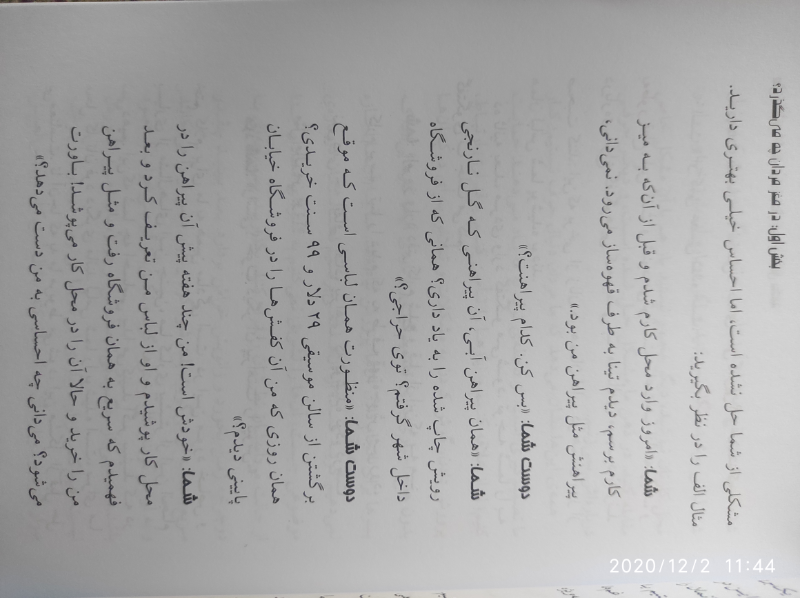 بخش اول: در مغز مردان چه می‌گذرد؟
مشکلی از شما حل نشده است، اما احساس خیلی بهتری دارید.
مثال الف را در نظر بگیرید:
شما: «امروز وارد محل کارم شدم و قبل از آن‌که به میز
کارم برسم، دیدم تینا به طرف قهوه‌ساز می‌رود. نمی‌دانی،
پیراهنش مثل پیراهن من بود.»
دوست شما: «بس کن. کدام پیراهنت؟»
شما: «همان پیراهن آبی، آن پیراهنی که گل نارنجی
رویش چاپ شده را به یاد داری؟ همانی که از فروشگاه
داخل شهر گرفتم؟ توی حراجی؟»
دوست شما: «منظورت همان لباسی است که موقع
برگشتن از سالن موسیقی ۲۹ دلار و ۹۹ سنت خریدی؟
همان روزی که من آن کفش‌ها را در فروشگاه خیابان
پایینی دیدم؟»
شما: «خودش است! من چند هفته پیش آن پیراهن را در
محل کار پوشیدم و او از لباس من تعریف کرد و بعد
فهمیدم که سریع به همان فروشگاه رفت و مثل پیراهن
من را خرید و حالا آن را در محل کار می‌پوشد! باورت
می‌شود؟ می‌دانی چه احساسی به من دست می‌دهد؟»
2020/12/2 11:44